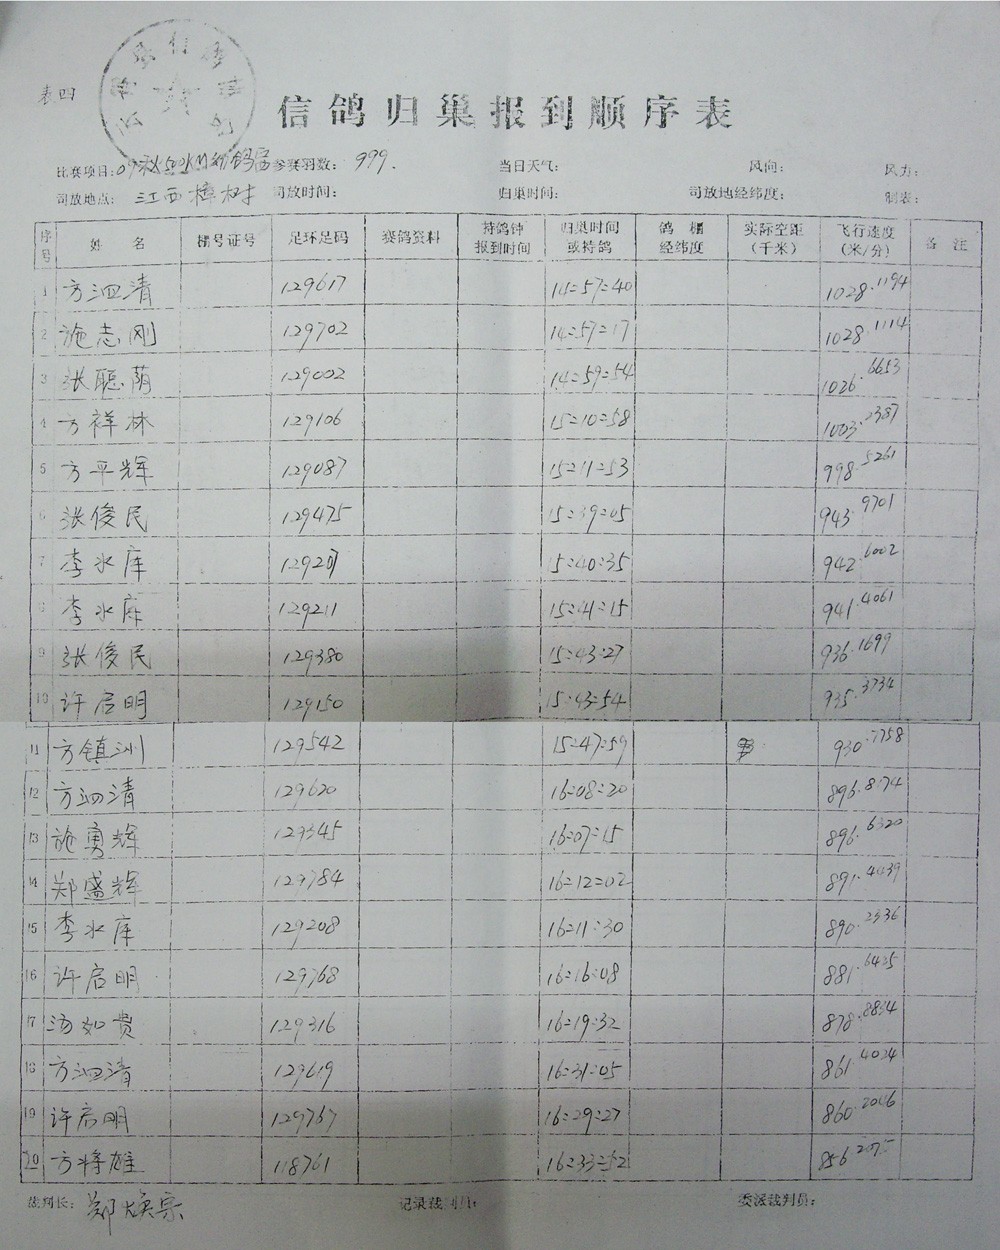 表四
信鸽归巢报到顺序表
比赛项目:09秋500KM幼鸽 参赛羽数: 999. 当日天气: 风向: 风力:
司放地点: 江西樟树 司放时间: 归巢时间: 司放地经纬度: 制表:
序号 姓名 棚号证号 足环足码 赛鸽资料 持鸽钟报到时间 归巢时间或持鸽 鸽棚经纬度 实际空距(千米) 飞行速度(米/分) 备注
1 方泗清 129617 14:57:40 1028.1194
2 施志刚 129702 14:57:17 1028.1114
3 张聪荫 129002 14:59:54 1026.6653
4 方祥林 129106 15:10:58 1003.2387
5 方平辉 129087 15:11:53 998.5261
6 张俊民 129475 15:39:05 943.9701
7 李水库 129207 15:40:35 942.6002
8 李水库 129211 15:41:15 941.4061
9 张俊民 129380 15:43:27 936.1699
10 许启明 129150 15:43:54 935.3734
11 方镇洲 129542 15:47:59 930.7758
12 方泗清 129620 16:08:20 896.8174
13 施勇辉 129345 16:07:15 896.6320
14 郑盛辉 129784 16:12:02 891.4439
15 李水库 129208 16:11:30 890.2536
16 许启明 129768 16:16:08 881.6425
17 汤如贵 129316 16:19:32 878.8834
18 方泗清 129619 16:31:05 861.4024
19 许启明 129767 16:29:27 860.2046
20 方将雄 118761 16:33:52 856.2075
裁判长: 郑焕宗 记录裁判员: 委派裁判员: